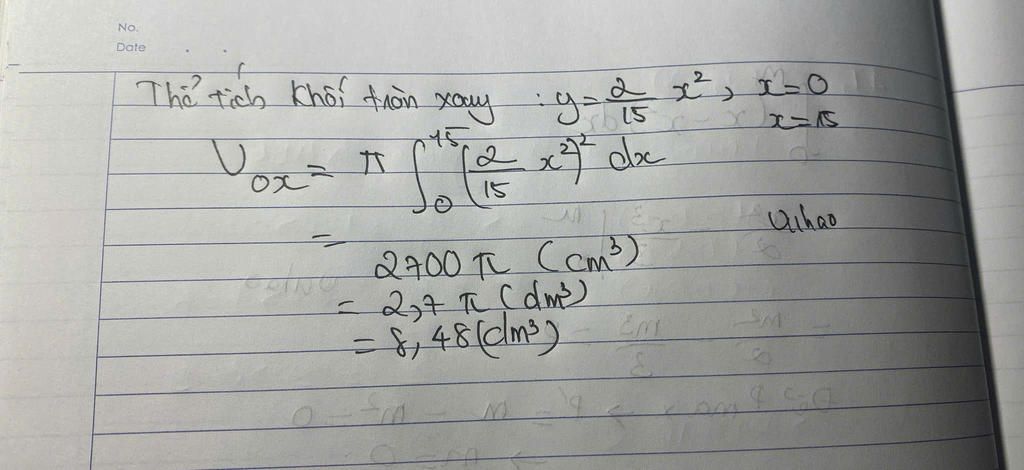 No.
Date
Thể tích khối tròn xoay : y = 2/15 x², x = 0
x = 15
V_Ox = π ∫₀¹⁵ (2/15 x²)² dx
=
2700 π (cm³)
= 2,7 π (dm³)
= 8,48 (dm³)